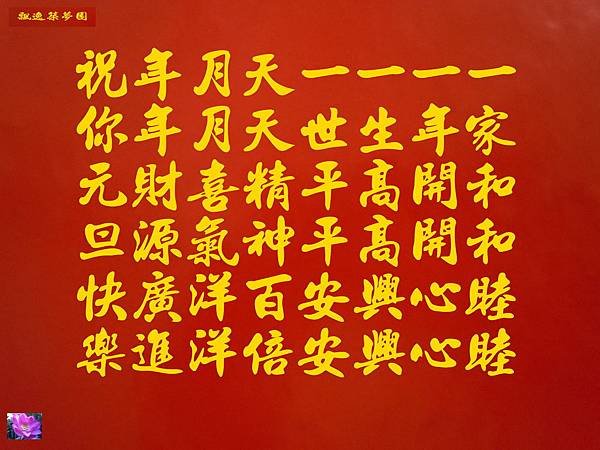 飄逸築夢園
一家和和睦睦
一年開開心心
一生高高興興
一世平平安安
天天精神百倍
月月喜氣洋洋
年年財源廣進
祝你元旦快樂